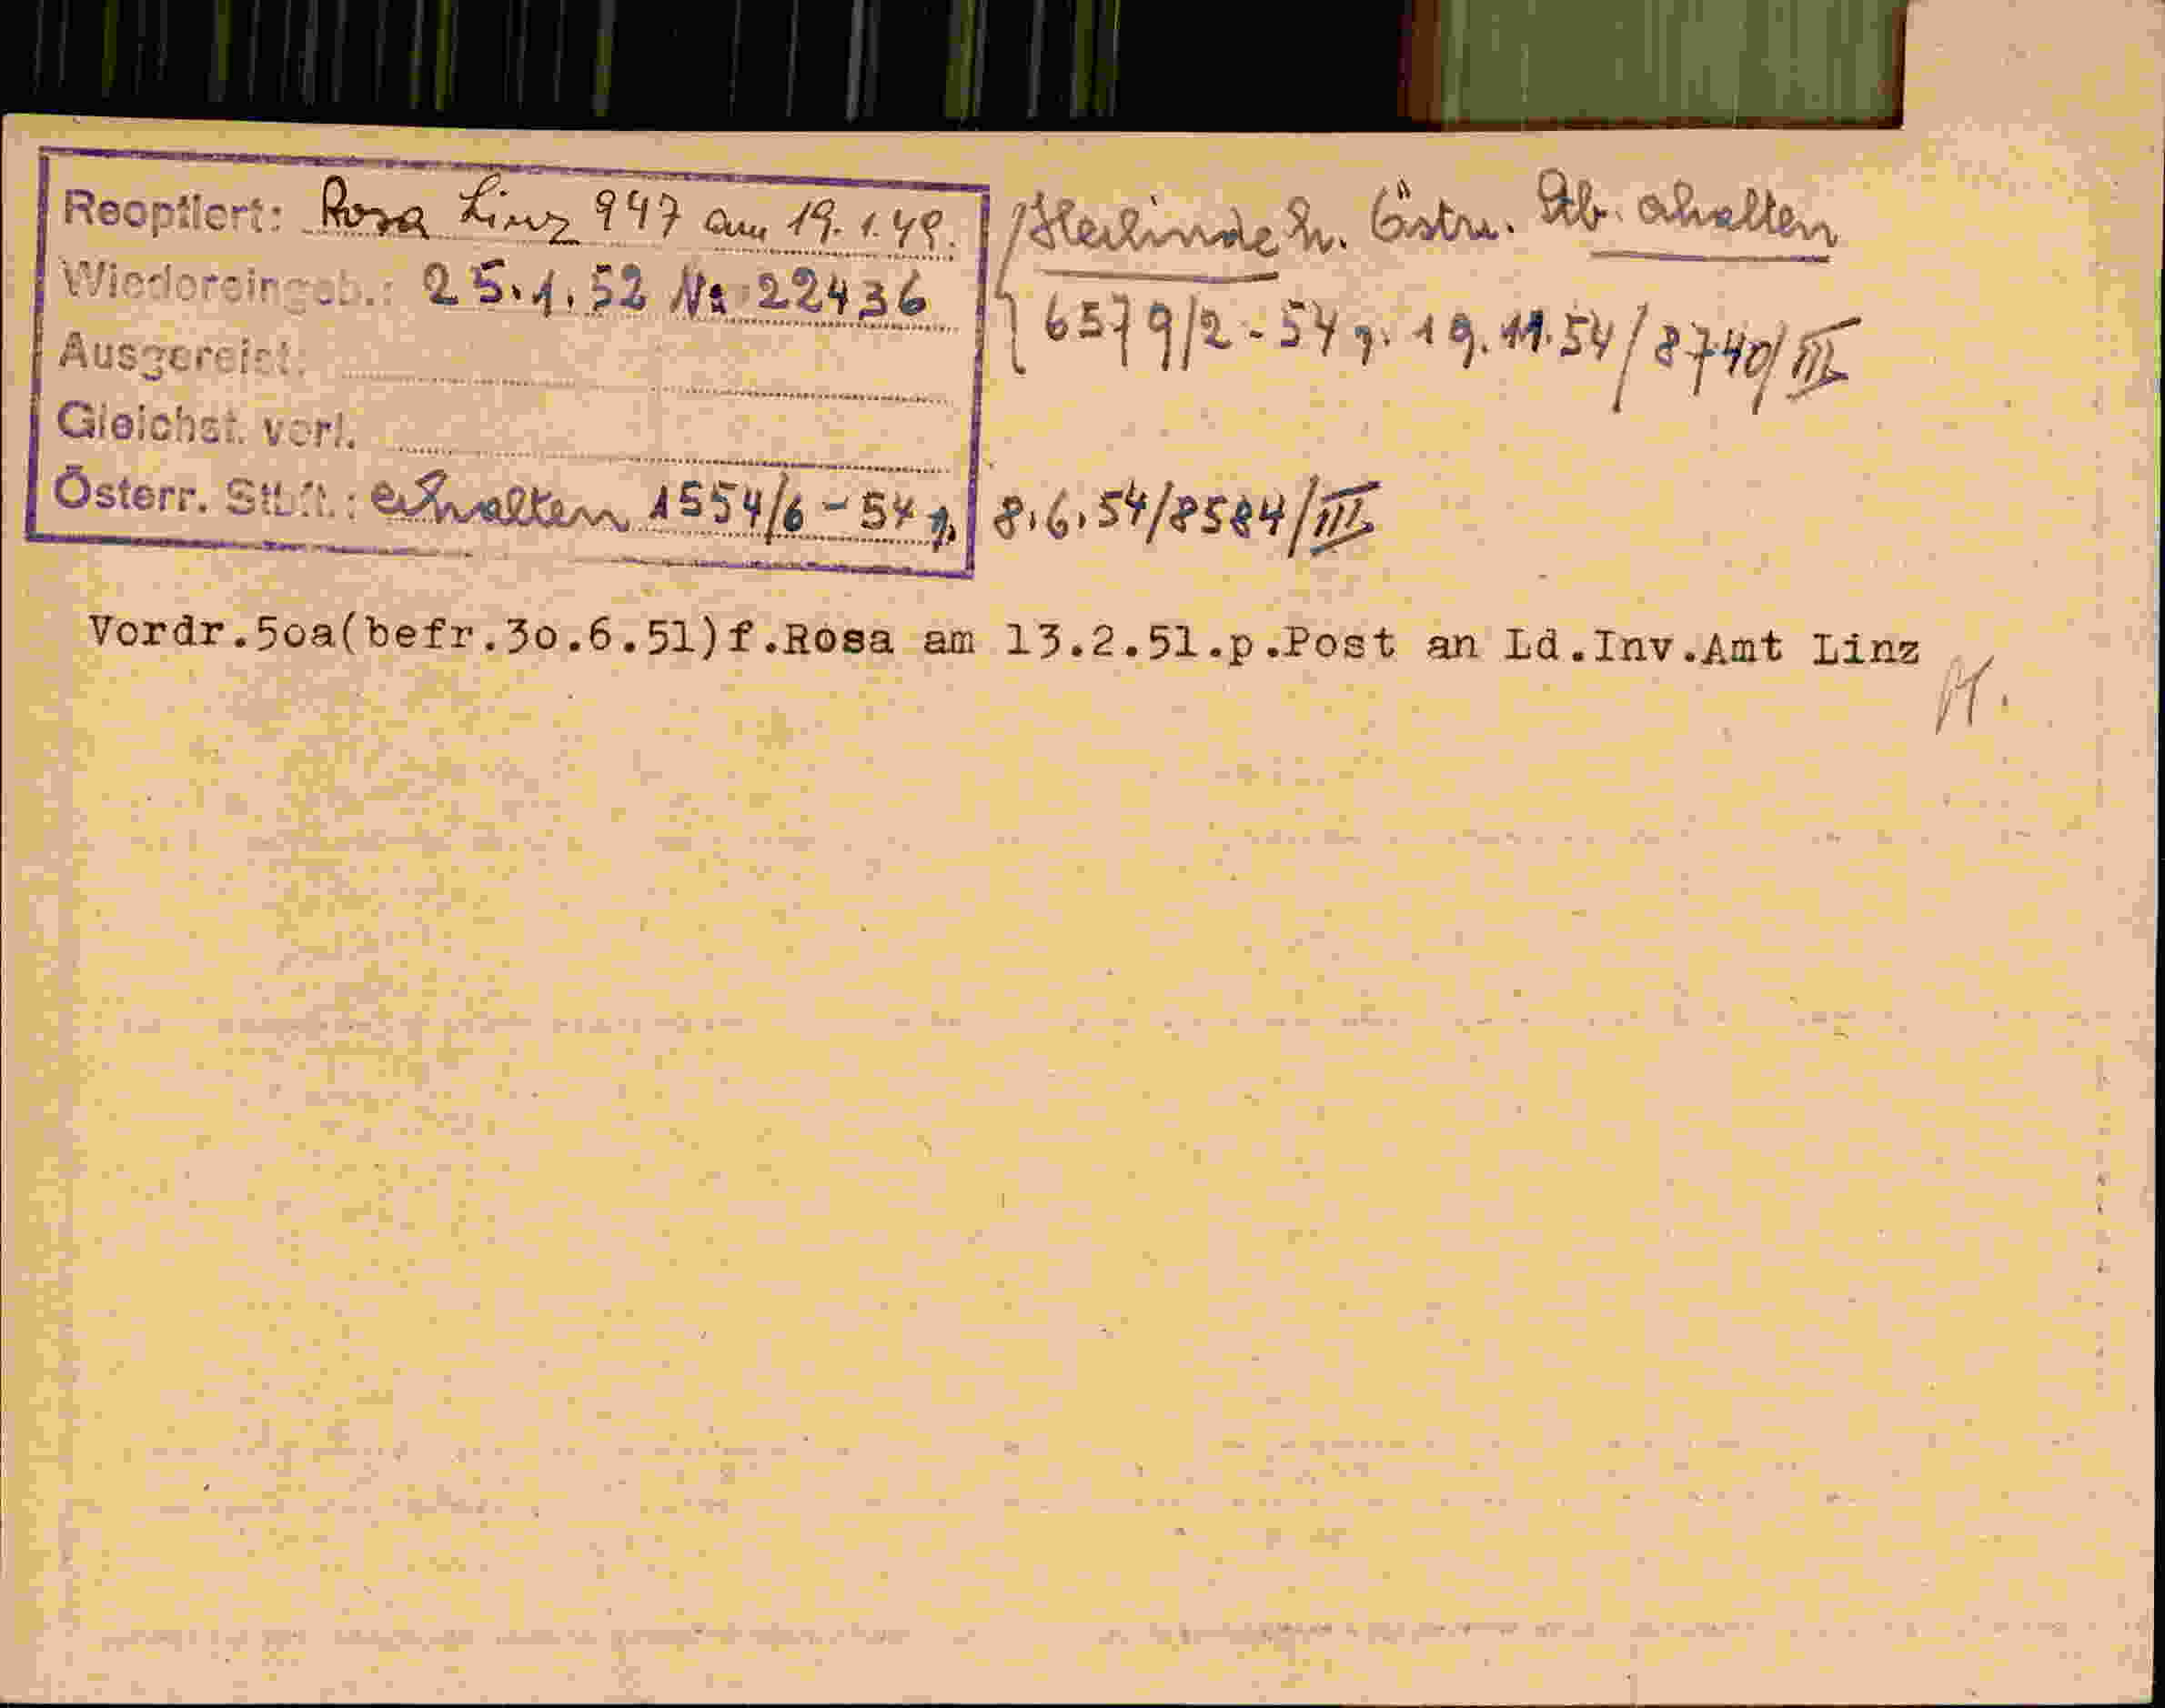 Reoptiert: Rosa Linz 947 am 19.1.49.
Wiedereingeb.: 25.1.52 Nr 22436
Ausgereist:
Gleichst. verl.
Österr. Stbft.: erhalten 1554/6-54 8.6.54/8584/III
Östr. Stb. erhalten
6579/2-54 19.11.54/8740/III
Vordr.5oa(befr.3o.6.51)f.Rosa am 13.2.51.p.Post an Ld.Inv.Amt Linz